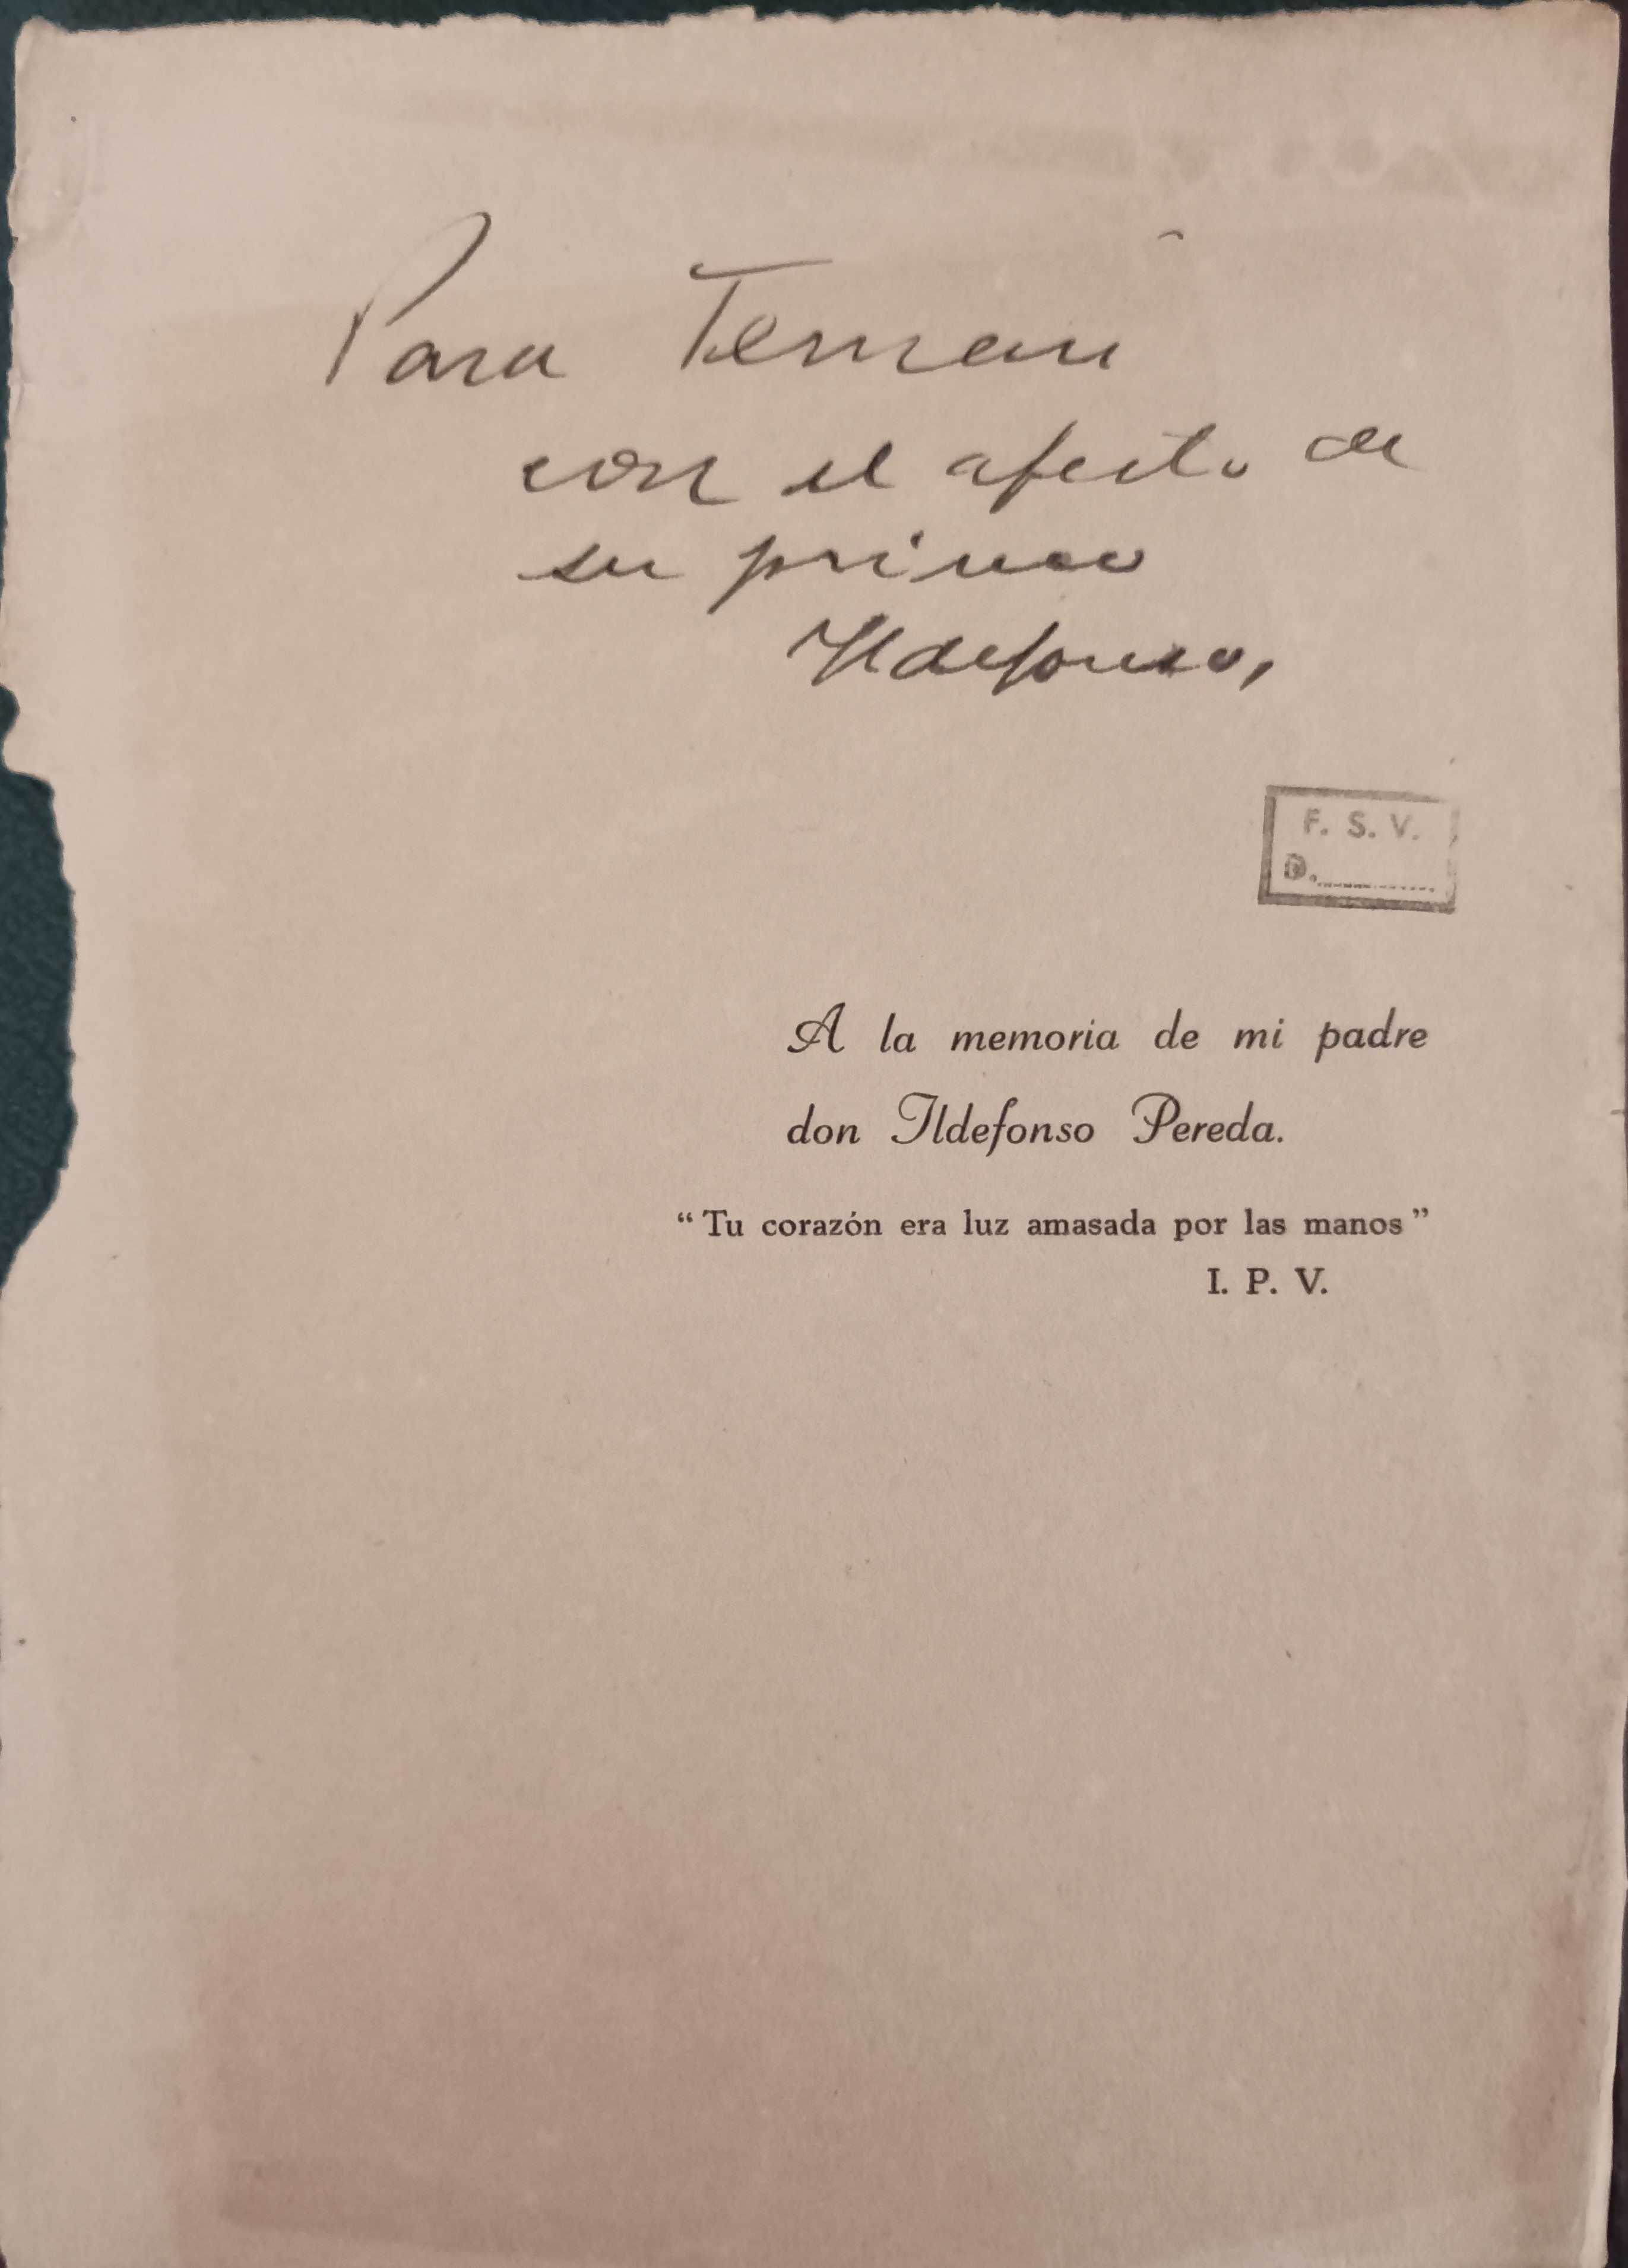 Para Fernán
con el afecto de
su primo
Ildefonso,
F. S. V.
D.
A la memoria de mi padre
don Ildefonso Pereda.
“Tu corazón era luz amasada por las manos”
I. P. V.